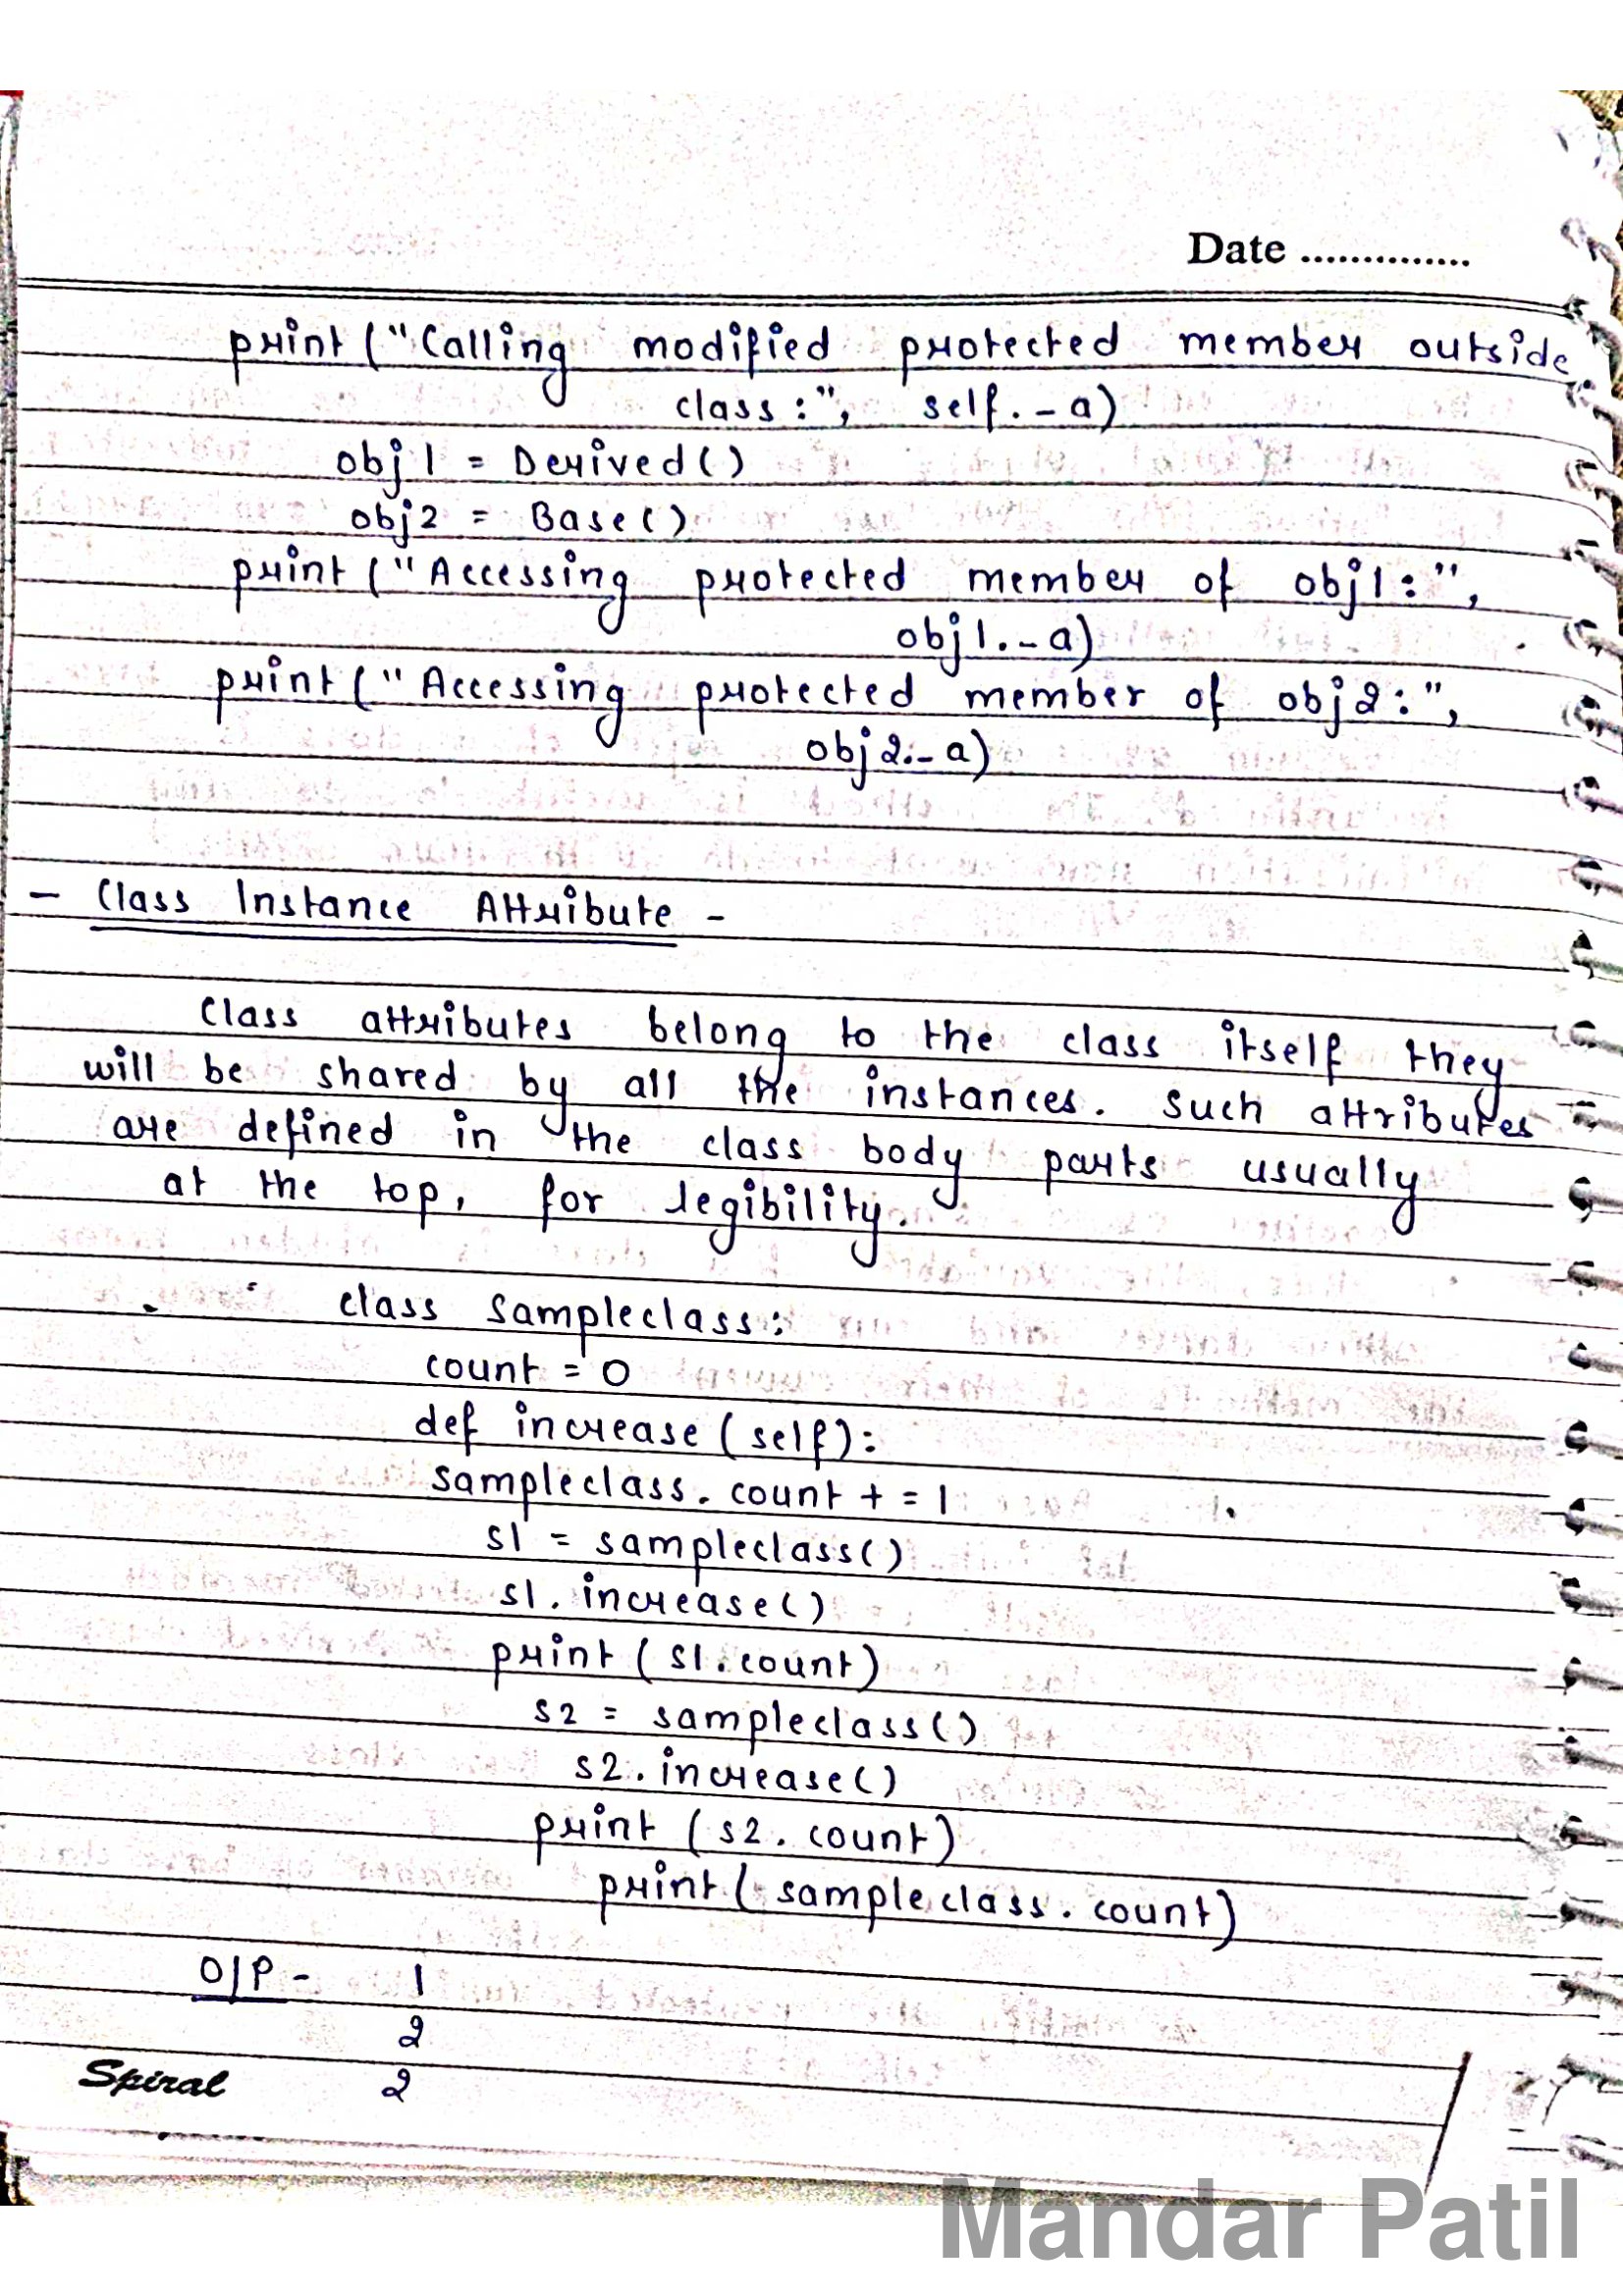 Date ..............
print ("Calling modified protected member outside
class :", self. _a)
obj1 = Derived()
obj2 = Base()
print ("Accessing protected member of obj1:",
obj1._a)
print ("Accessing protected member of obj2:",
obj2._a)
- Class Instance Attribute -
Class attributes belong to the class itself they
will be shared by all the instances. Such attributes
are defined in the class body parts usually
at the top, for legibility.
class sampleclass:
count = 0
def increase (self):
sampleclass. count + = 1
s1 = sampleclass()
s1. increase()
print (s1.count)
s2 = sampleclass()
s2. increase()
print (s2. count)
print (sampleclass. count)
O/P - 1
2
Spiral 2
Mandar Patil